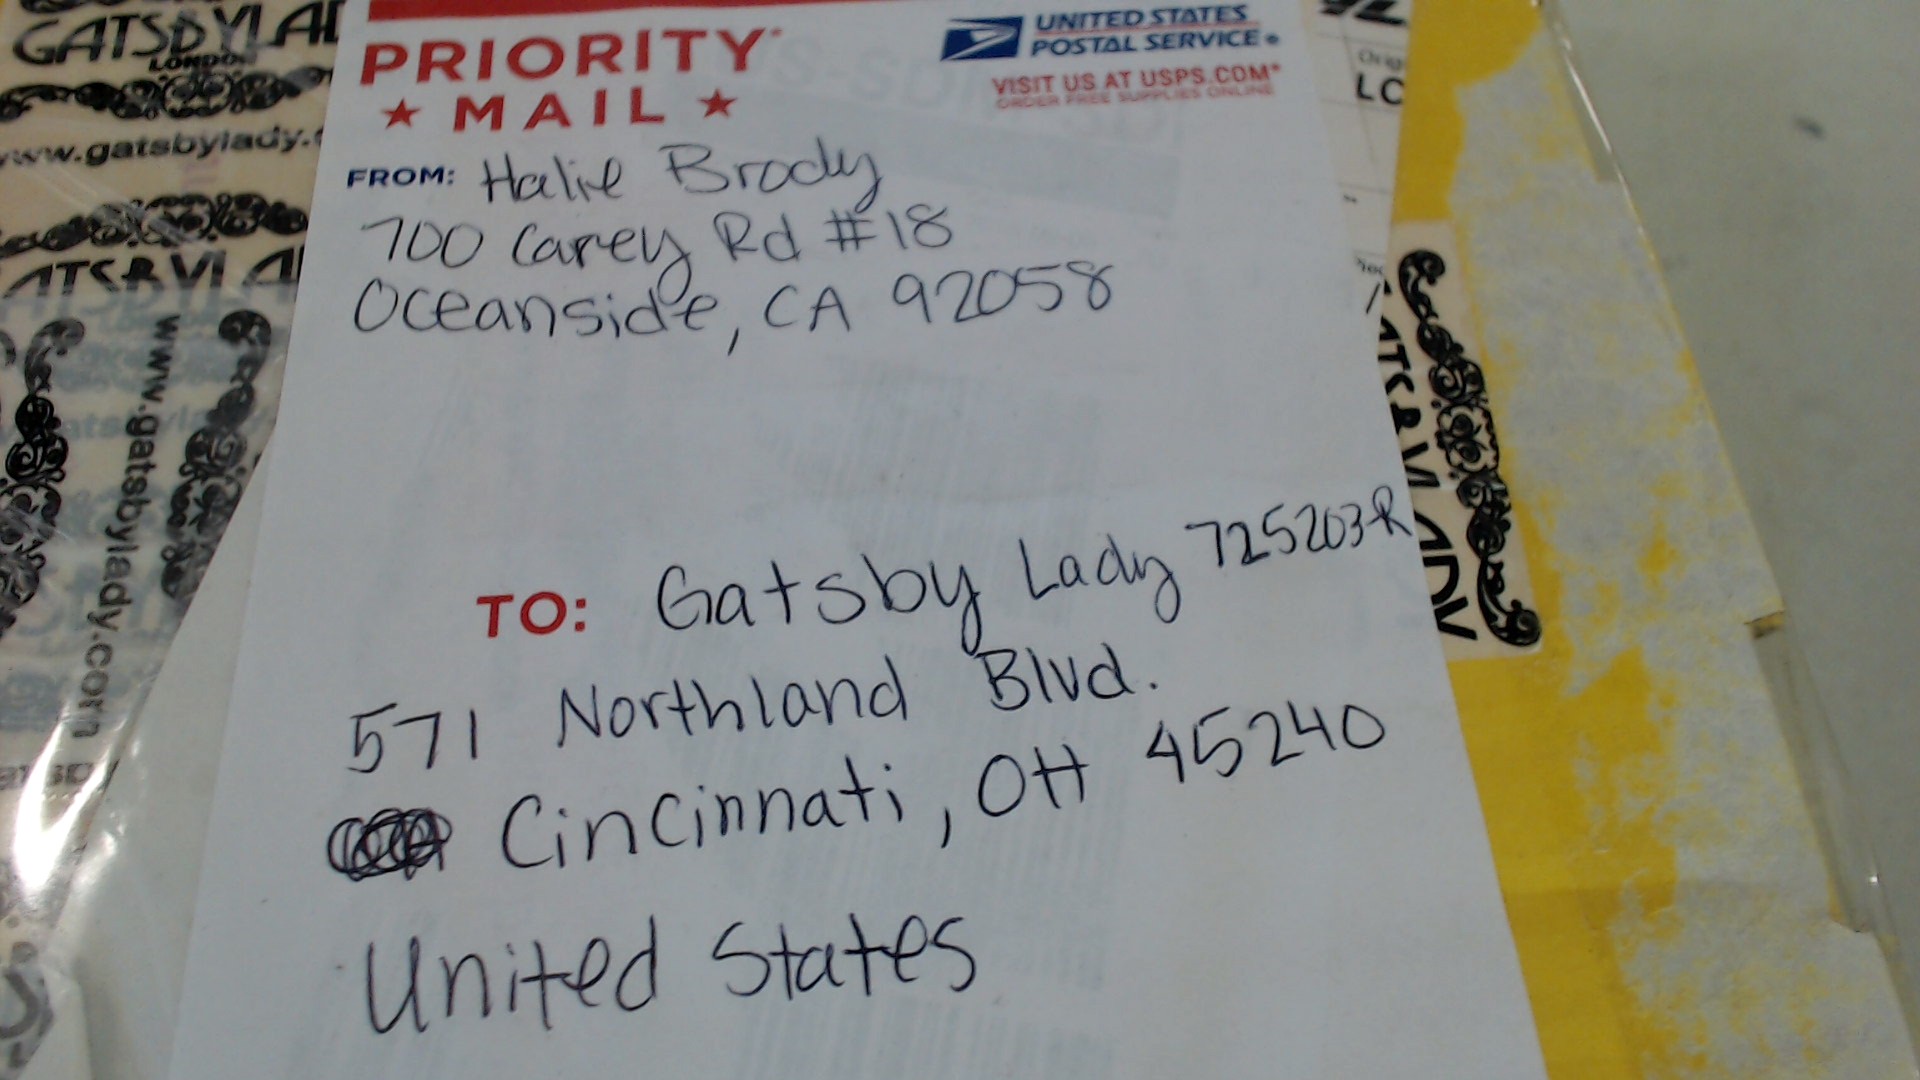 GATSBYLAD
LONDON
www.gatsbylady.c
GATSBYLA
www.gatsbylady.com
PRIORITY
★ MAIL ★
UNITED STATES
POSTAL SERVICE®
VISIT US AT USPS.COM®
ORDER FREE SUPPLIES ONLINE
FROM: Halie Brody
700 Carey Rd #18
Oceanside, CA 92058
TO: Gatsby Lady 725203-R
571 Northland Blvd.
Cincinnati, OH 45240
United States
LO
GATSBYLADY